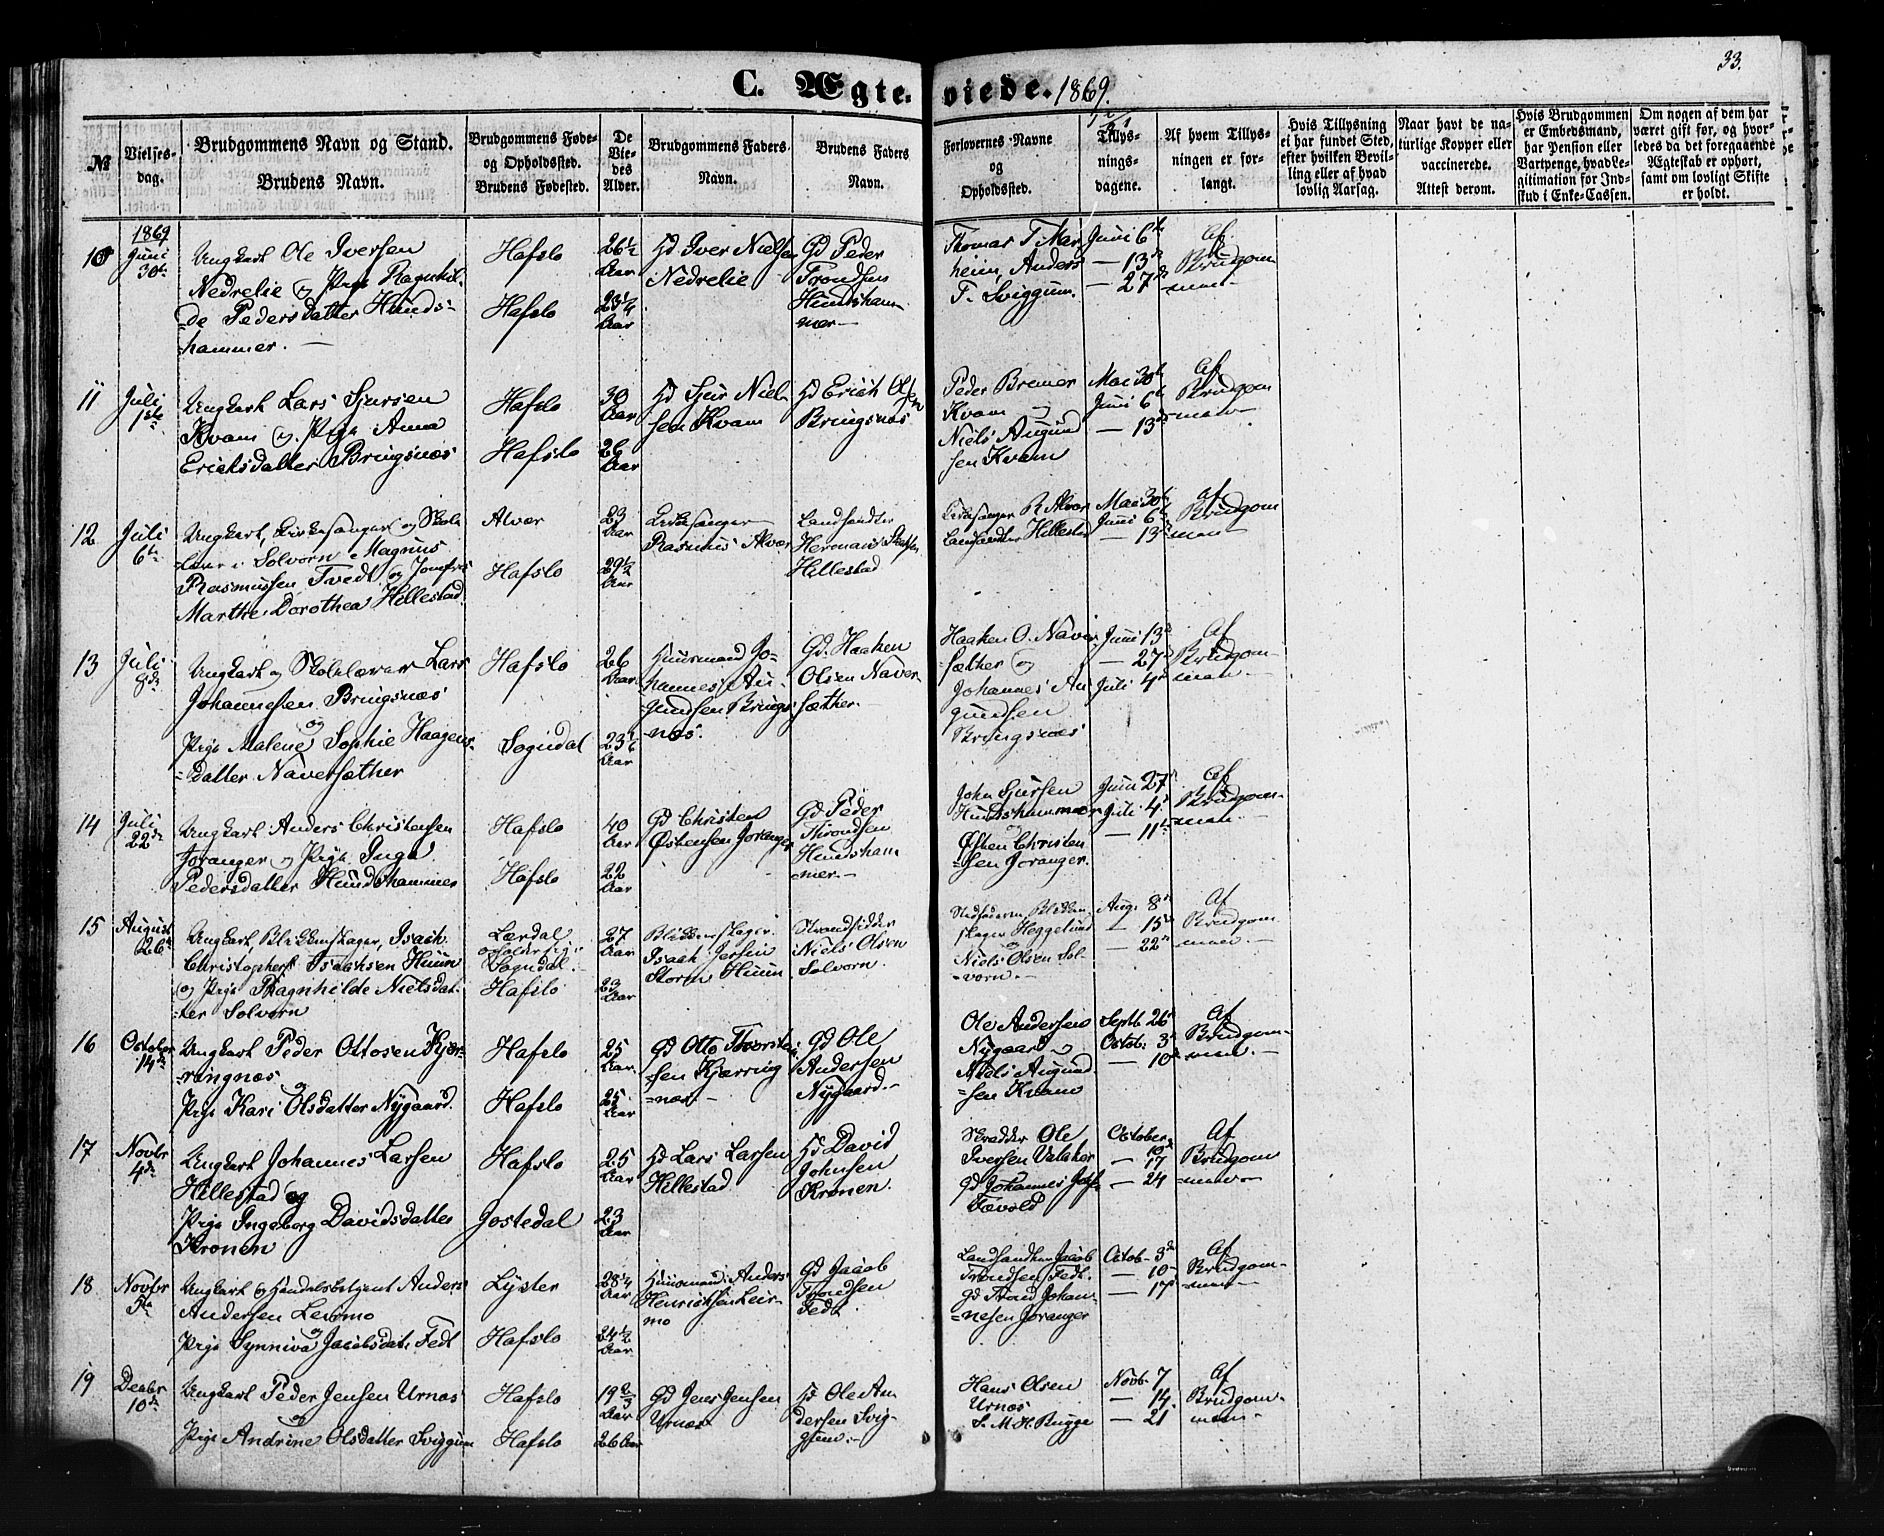 33.
C. Ægte- viede. 1869.
№
Vielses-
dag.
Brudgommens Navn og Stand.
Brudens Navn.
Brudgommens Føde-
og Opholdssted.
Brudens Fødested.
De
Vie-
des
Alder.
Brudgommens Faders
Navn.
Brudens Faders
Navn.
Forlovernes Navne
og
Opholdssted.
Tillys-
nings-
dagene.
Af hvem Tillys-
ningen er for-
langt.
Hvis Tillysning
ei har fundet Sted,
efter hvilken Bevil-
ling eller af hvad
lovlig Aarsag.
Naar havt de na-
turlige Kopper eller
vaccinerede.
Attest derom.
Hvis Brudgommen
er Embedsmand,
har Pension eller
Vartpenge, hvad Le-
gitimation for Ind-
skud i Enke-Cassen.
Om nogen af dem har
været gift før, og hvor-
ledes da det foregaaende
Ægteskab er ophørt,
samt om lovligt Skifte
er holdt.
1869
10 Juni 30te
Ungkarl Ole Iversen
Nedrelie og Pige Ragnhil-
de Pedersdatter Hunds-
hammer.
Hafslo
Hafslo
26½ Aar
23¼ Aar
Gd Iver Nielsen
Nedrelie
Gd Peder
Trondsen
Hundsham-
mer
Thomas T. Mar-
heim, Anders
T. Sviggum.
Juni 6te
— 13de
— 27de
Af
Brudgom-
men
11 Juli 1ste
Ungkarl Lars Sjursen
Kvam og Pige Anna
Erichsdatter Bringsnæs
Hafslo
Hafslo
30 Aar
26 Aar
Gd Sjur Niel-
sen Kvam
Gd Erich Olsen
Bringsnæs
Peder Bremer
Kvam
Niels Augund-
sen Kvam
Mai 30te
Juni 6te
— 13de
Af
Brudgom-
men
12 Juli 6te
Ungkarl, Kirkesanger og Skole-
lærer i Solvorn Magnus
Rasmussen Tvedt og Jomfru
Marthe Dorothea Hillestad.
Alvær
Hafslo
23 Aar
29½ Aar
Kirkesanger
Rasmus Alvær
Landhandler
Herman
Hillestad
Kirkesanger R. Alvær
Landhandler Hillestad
Mai 30te
Juni 6te
— 13de
Af
Brudgom-
men
13 Juli 8de
Ungkarl og Skolelærer Lars
Johannesen Bringsnæs
og
Pige Malene Sophie Haagens-
datter Naversæther
Hafslo
Sogndal
26 Aar
23 Aar
Huusmand Jo-
hannes Au-
gundsen Brings-
næs.
Gd. Haaken
Olsen Naver-
sæther.
Haaken O. Naver-
sæther og
Johannes Au-
gundsen
Bringsnæs
Juni 13de
— 27de
Juli 4de
Af
Brudgom-
men.
14 Juli 22de
Ungkarl Anders Christensen
Joranger og Pige Inga
Pedersdatter Hundshammer
Hafslo
Hafslo
40 Aar
22 Aar
Gd Christen
Østensen Joranger
Gd Peder
Throndsen
Hundsham-
mer.
John Sjursen
Hundshammer
og
Østen Christen-
sen Joranger.
Juni 27de
Juli 4de
— 11te
Af
Brudgom-
men.
15 August 26de
Ungkarl Blikkenslager, Isach
Christopher Isachsen Huun
og Pige Ragnhilde Nielsdat-
ter Solvorn
Lærdal
Sogndal.
Hafslo
27 Aar
23 Aar
Blikkenslager
Isach Jersin
Storm Huun
Strandsidder
Niels Olsen
Solvorn.
Stedfaderen Blikken-
slager Heggelund
og
Niels Olsen Sol-
vorn.
Aug. 8de
— 15de
— 22de
Af
Brudgom-
men.
16 October 14de
Ungkarl Peder Ottosen Kjær-
ringnæs
og
Pige Kari Olsdatter Nygaard.
Hafslo
Hafslo
25 Aar
25 Aar
Gd Otto Thorsten-
sen Kjærring-
næs
Gd Ole
Andersen
Nygaard.
Ole Andersen
Nygaard og
Niels Augund-
sen Kvam
Septb 26de
Octob. 3de
— 10de
Af
Brudgom-
men.
17 Novbr 4de
Ungkarl Johannes Larsen
Hillestad og
Pige Ingeborg Davidsdatter
Kronen
Hafslo
Jostedal
25 Aar
23 Aar
Gd Lars Larsen
Hillestad
Gd David
Johnsen
Kronen.
Skrædder Ole
Iversen Valaker
Gd Johannes
October 10
— 17
— 24
Af
Brudgom-
men
18 Novbr 5te
Ungkarl og Handelsbetjent Anders
Andersen Leirmo
og
Pige Synniva Jacobsdatr Fedt
Lyster
Hafslo
28¼ Aar
24½ Aar
Huusmand Anders
Henrichsen Leir-
mo
Gd Jacob
Trondsen
Fedt
Landhandler Jacob
Trondsen Fedt.
Gd Trond Johan-
nesen Joranger
Octob. 3de
— 10de
— 17de
Af
Brudgom-
men
19 Decbr 10de
Ungkarl Peder Jensen Urnæs
og
Pige Andrine Olsdatter Sviggum
Hafslo
Hafslo
19⅔ Aar
26 Aar
Gd Jens Jensen
Urnæs
Gd Ole An-
dersen Svig-
gum.
Hans Olsen
Urnæs
S. M. H. Bugge
Novb. 7
— 14.
— 21
Af
Brudgom-
men